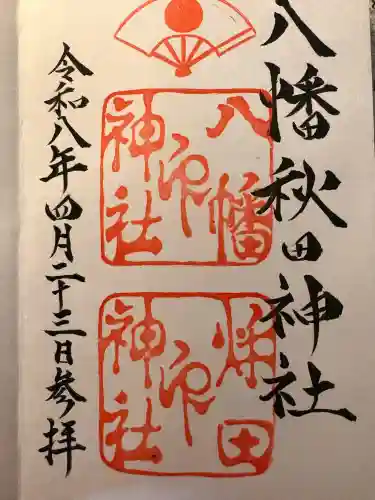 八幡秋田神社
八幡
神社
印
秋田
神社
印
令和八年四月二十三日参拝